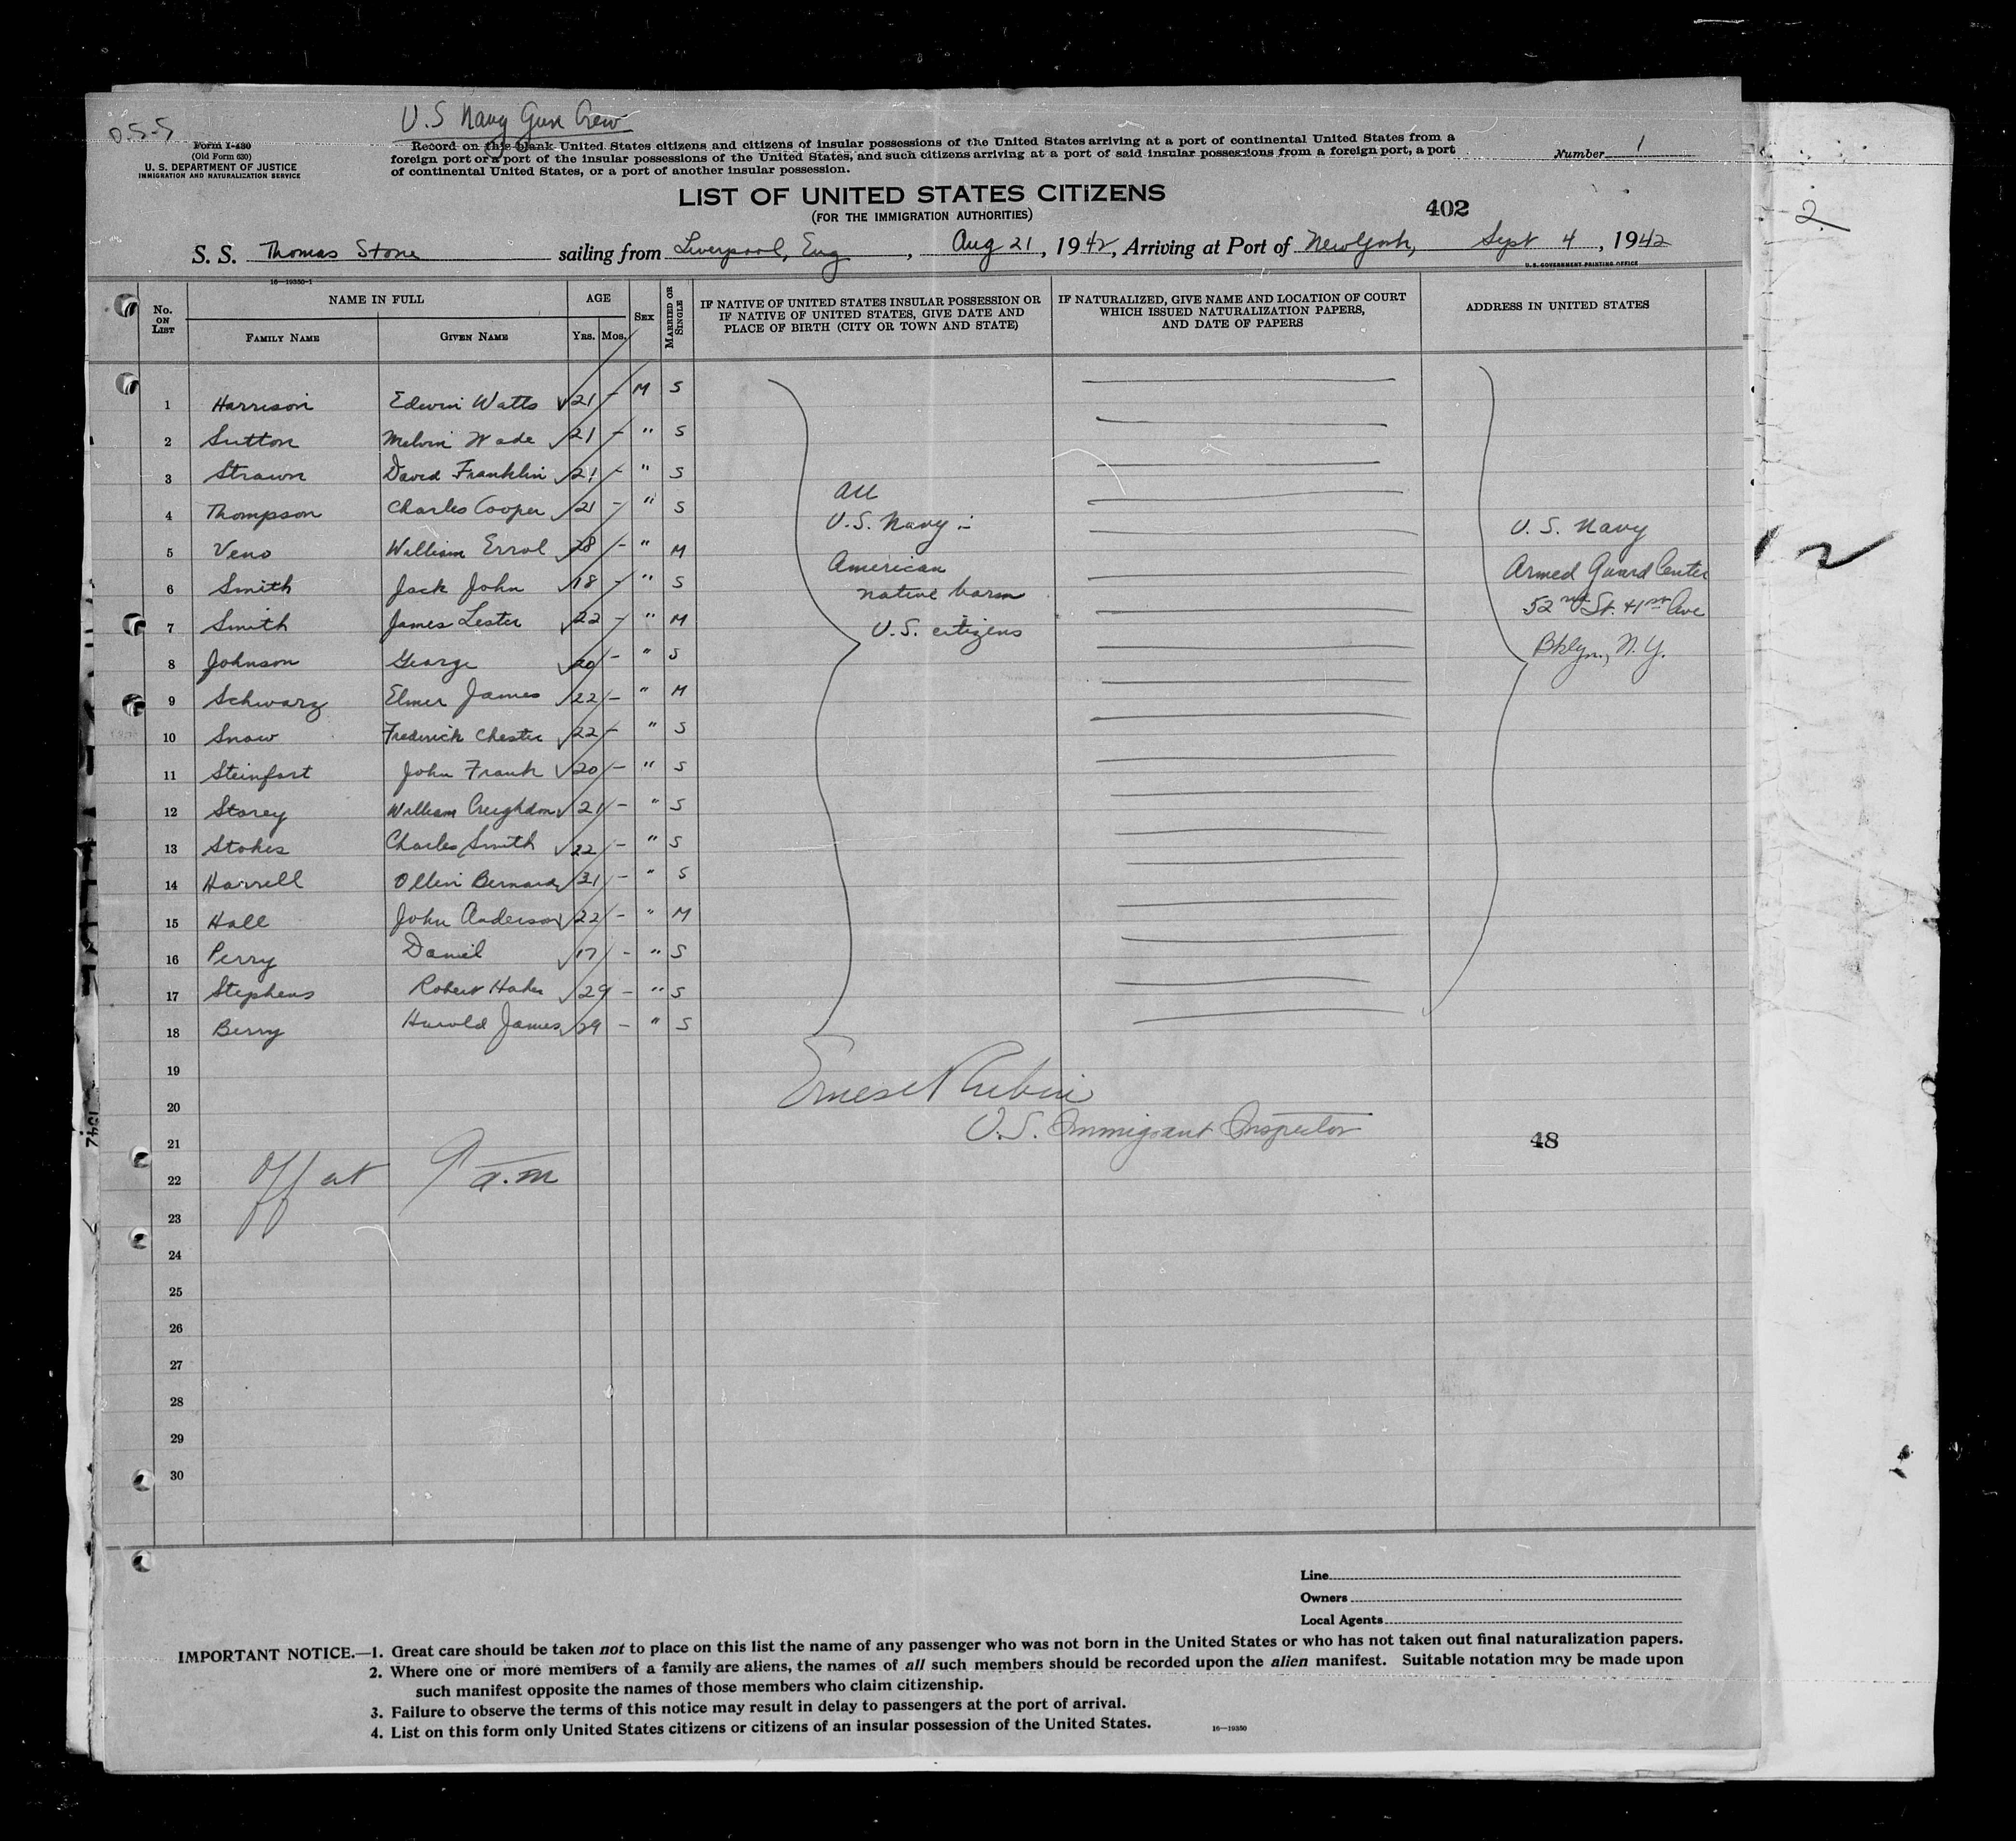 0.5-5
U.S Navy Gun Crew
Form I-430
(Old Form 630)
U. S. DEPARTMENT OF JUSTICE
IMMIGRATION AND NATURALIZATION SERVICE
Record on this blank United States citizens and citizens of insular possessions of the United States arriving at a port of continental United States from a
foreign port or a port of the insular possessions of the United States, and such citizens arriving at a port of said insular possessions from a foreign port, a port
of continental United States, or a port of another insular possession.
Number 1
LIST OF UNITED STATES CITIZENS
(FOR THE IMMIGRATION AUTHORITIES)
402
2.
S. S. Thomas Stone sailing from Liverpool, Eng, Aug 21, 1942, Arriving at Port of New York, Sept 4, 1942
U.S. GOVERNMENT PRINTING OFFICE
16—19350-1
No. ON LIST NAME IN FULL AGE SEX MARRIED OR SINGLE IF NATIVE OF UNITED STATES INSULAR POSSESSION OR IF NATIVE OF UNITED STATES, GIVE DATE AND PLACE OF BIRTH (CITY OR TOWN AND STATE) IF NATURALIZED, GIVE NAME AND LOCATION OF COURT WHICH ISSUED NATURALIZATION PAPERS, AND DATE OF PAPERS ADDRESS IN UNITED STATES
FAMILY NAME GIVEN NAME YRS. MOS.
1 Harrison Edwin Watts 21 – M S
2 Sutton Melvin Wade 21 – " S
3 Strawn David Franklin 21 – " S
4 Thompson Charles Cooper 21 – " S
5 Veno William Errol 28 – " M
6 Smith Jack John 18 – " S
7 Smith James Lester 22 – " M
8 Johnson George 20 – " S
9 Schwarz Elmer James 22 – " M
10 Snow Frederick Chester 22 – " S
11 Steinfort John Frank 20 – " S
12 Storey William Creighdon 21 – " S
13 Stokes Charles Smith 22 – " S
14 Harrell Ollin Bernard 21 – " S
15 Hall John Anderson 22 – " M
16 Perry Daniel 17 – " S
17 Stephens Robert 29 – " S
18 Berry Harold James 29 – " S
All
U.S. Navy –
American
native born
U.S. citizens
U. S. Navy
Armed Guard Center
52nd St. & 1st Ave
Bklyn., N.Y.
2
19
20
21
22
23
24
25
26
27
28
29
30
Ernest Rubin
U.S. Immigrant Inspector
48
Off at 9 a.m
Line
Owners
Local Agents
IMPORTANT NOTICE.—1. Great care should be taken not to place on this list the name of any passenger who was not born in the United States or who has not taken out final naturalization papers.
2. Where one or more members of a family are aliens, the names of all such members should be recorded upon the alien manifest. Suitable notation may be made upon
such manifest opposite the names of those members who claim citizenship.
3. Failure to observe the terms of this notice may result in delay to passengers at the port of arrival.
4. List on this form only United States citizens or citizens of an insular possession of the United States.
16—19350